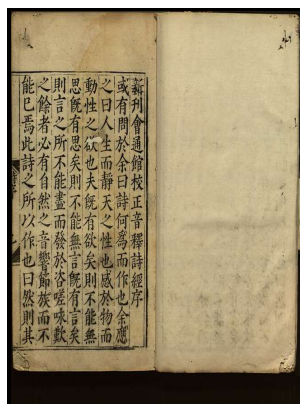 新刊會通館校正音釋詩經序
或有問於余曰詩何爲而作也余應
之曰人生而靜天之性也感於物而
動性之欲也夫旣有欲矣則不能無
思旣有思矣則不能無言旣有言矣
則言之所不能盡而發於咨嗟咏歎
之餘者必有自然之音響節族而不
能已焉此詩之所以作也曰然則其